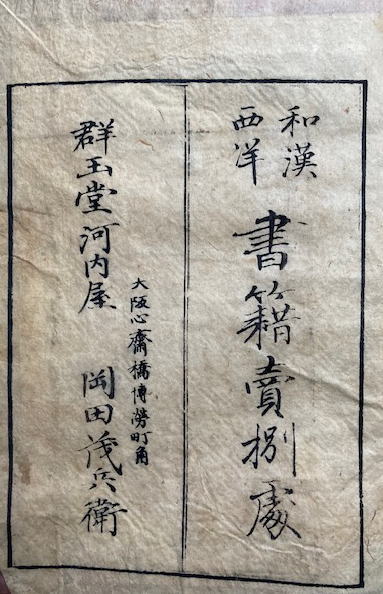 和漢
西洋
書籍賣捌處
大阪心齋橋博勞町角
群玉堂河内屋 岡田茂兵衛